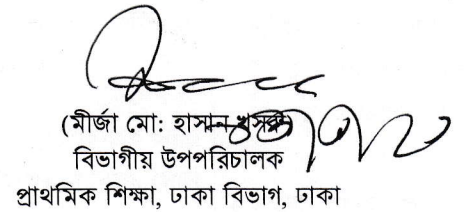 (মীর্জা মো: হাসান খসরু)
বিভাগীয় উপপরিচালক
প্রাথমিক শিক্ষা, ঢাকা বিভাগ, ঢাকা